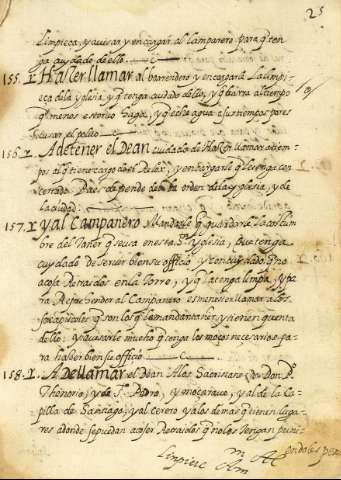 25
Limpieça, y avisar y encargar al Campanero para q ten
ga cuydado de ello
155. Haser llamar al barrendero y encargarle la limpi
eça de la yglesia, y q tenga cuidado dello, y q barra al tiempo
q menos estorvo haga, y q heche agua a sus tiempos por es
cusar el polbo
156. A de tener el Dean cuidado de Haser llamar a tiem
pos al q tiene cargo del Relox, y encargarle q le tenga con
certado. Pues depende del la orden de la yglesia, y de
la ciudad.
157. Y al Campanero Mandarle q guarde la costum
bre del Tañer q se usa en esta Sta yglesia, que tenga
cuydado de servir bien su officio, y con cuydado q no
acoja Retraidos en la Torre, y q la tenga limpia, y pa
ra Reprehender al Campanero es menester llamar a los
q son los q le mandan tañer y tienen quenta
dello y avisarle mucho q tenga los moços necesarios pa
ra haser bien su officio
158. A de llamar el Dean A los Sacristanes de Don Po
Thenorio, y de S. Pedro, y moçarave, y al de la Ca
pilla de Santiago, y al cerero y a los demas q tienen luga
res adonde se puedan acojer Retraidos q no los tengan
Limpiece